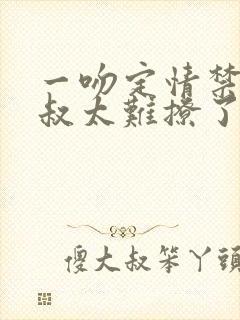 一吻定情禁
叔太難撩了
傻大叔笨丫頭